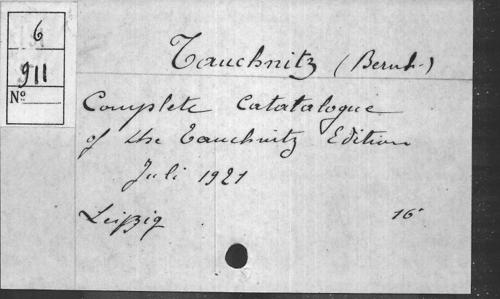 6
911
Nº
Tauchnitz (Bernh.)
Complete Catatalogue
of the Tauchnitz Edition
Juli 1921
Leipzig 16°